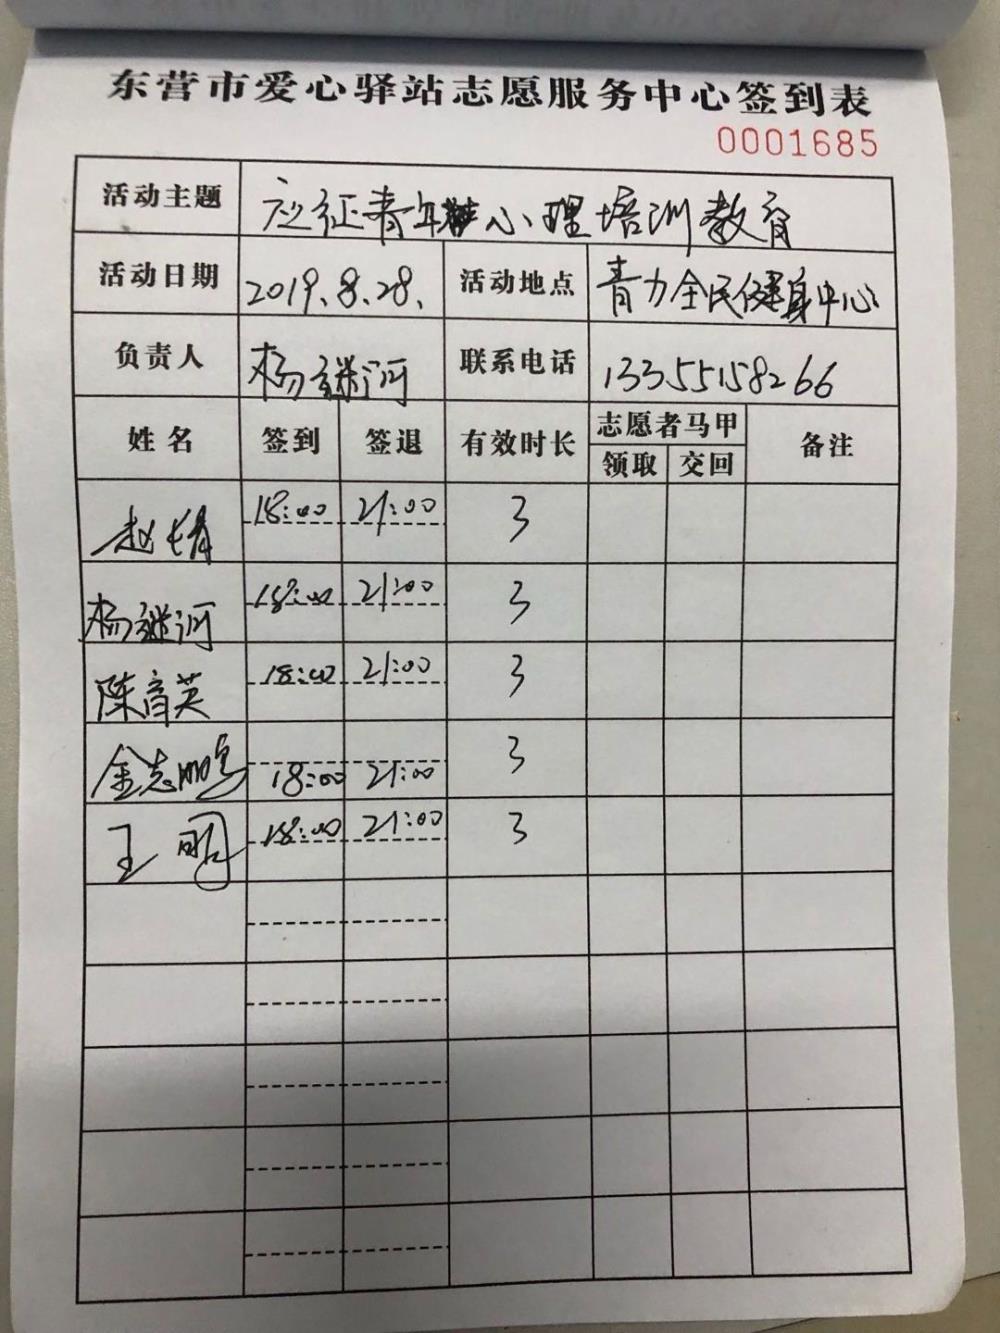 东营市爱心驿站志愿服务中心签到表
0001685
活动主题 应征青年心理培训教育
活动日期 2019.8.28. 活动地点 青力全民健身中心
负责人 杨继河 联系电话 13355158266
姓名 签到 签退 有效时长 志愿者马甲 备注
领取 交回
赵婧 18:00 21:00 3
杨继河 18:00 21:00 3
陈育英 18:00 21:00 3
金志鹏 18:00 21:00 3
王明 18:00 21:00 3